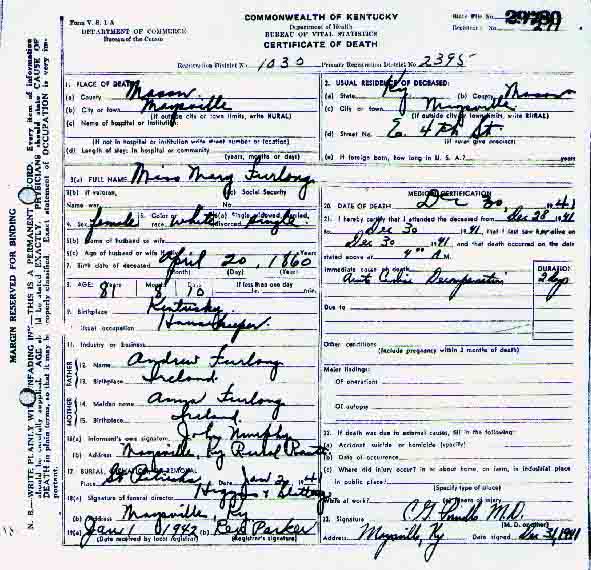 Form V. S. 1-A
DEPARTMENT OF COMMERCE
Bureau of the Census
COMMONWEALTH OF KENTUCKY
Department of Health
BUREAU OF VITAL STATISTICS
CERTIFICATE OF DEATH
State File No.
Registrar's No.
Registration District No. 1030 Primary Registration District No. 2395
MARGIN RESERVED FOR BINDING
1. PLACE OF DEATH
(a) County Mason
(b) City or town Maysville
(If outside city or town limits, write RURAL)
(c) Name of hospital or institution:
(If not in hospital or institution write street number or location)
(d) Length of stay: In hospital or community
(years, months or days)
2. USUAL RESIDENCE OF DECEASED:
(a) State Ky (b) County Mason
(c) City or town Maysville
(If outside city or town limits, write RURAL)
(d) Street No. E. 4th St.
(If rural give precinct)
(e) If foreign born, how long in U. S. A.? years
3(a) FULL NAME Miss Mary Furlong
3(b) If veteran, 3(c) Social Security
Name war No
4. Sex female 5. Color or race white 6(a) Single, widowed, married, divorced single
6(b) Name of husband or wife
6(c) Age of husband or wife if alive
7. Birth date of deceased April 20, 1860
(Month) (Day) (Year)
8. AGE: Years 81 Months 8 Days 10 If less than one day
9. Birthplace Kentucky
10. Usual occupation Housekeeper
11. Industry or business
FATHER
12. Name Andrew Furlong
13. Birthplace Ireland
MOTHER
14. Maiden name Anna Furlong
15. Birthplace Ireland
16(a) Informant's own signature John Murphy
(b) Address Maysville, Ky Rural Route
17. BURIAL, CREMATION OR REMOVAL
Place St Patricks Date Jan 2, 1941
18(a) Signature of funeral director
(b) Address Maysville Ky
19(a) Jan 1 1942 (b) Bess Parker
(Date received by local registrar) (Registrar's signature)
MEDICAL CERTIFICATION
20. DATE OF DEATH Dec 30, 1941
21. I hereby certify that I attended the deceased from Dec 28 1941
to Dec 30 1941, that I last saw h alive on
Dec 30 1941, and that death occurred on the date
stated above at 4:00 A.M.
Immediate cause of death
DURATION
Due to
Other conditions
(Include pregnancy within 3 months of death)
Major findings:
Of operations
Of autopsy
22. If death was due to external causes, fill in the following:
(a) Accident, suicide or homicide (specify)
(b) Date of occurrence
(c) Where did injury occur? In or about home, on farm, in industrial place
in public place?
(Specify type of place)
While at work? (e) Means of injury
23. Signature M.D.
(M. D. or other)
Address Maysville, Ky Date signed Dec 31, 1941